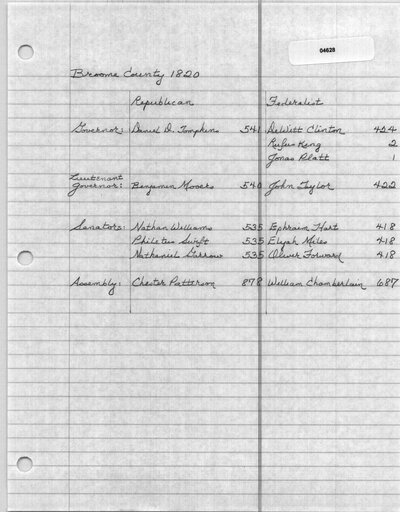 04628
Broome County 1820
Republican Federalist
Governor: Daniel D. Tompkins 541 DeWitt Clinton 424
Rufus King 2
Jonas Platt 1
Lieutenant
Governor: Benjamin Mooers 540 John Taylor 422
Senators: Nathan Williams 535 Ephraim Hart 418
Philetus Swift 535 Elijah Miles 418
Nathaniel Garrow 535 Oliver Forward 418
Assembly: Chester Patterson 878 William Chamberlain 687